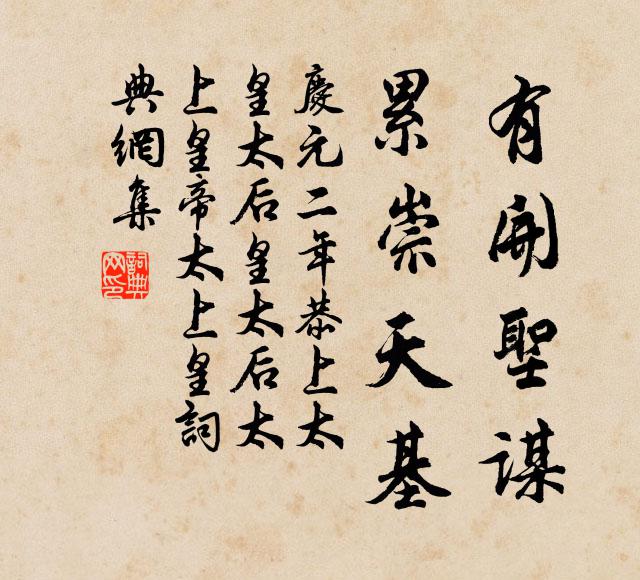 有開聖謀
累崇天基
慶元二年恭上太
皇太后皇太后太
上皇帝太上皇詞
典網集
詞典
网印